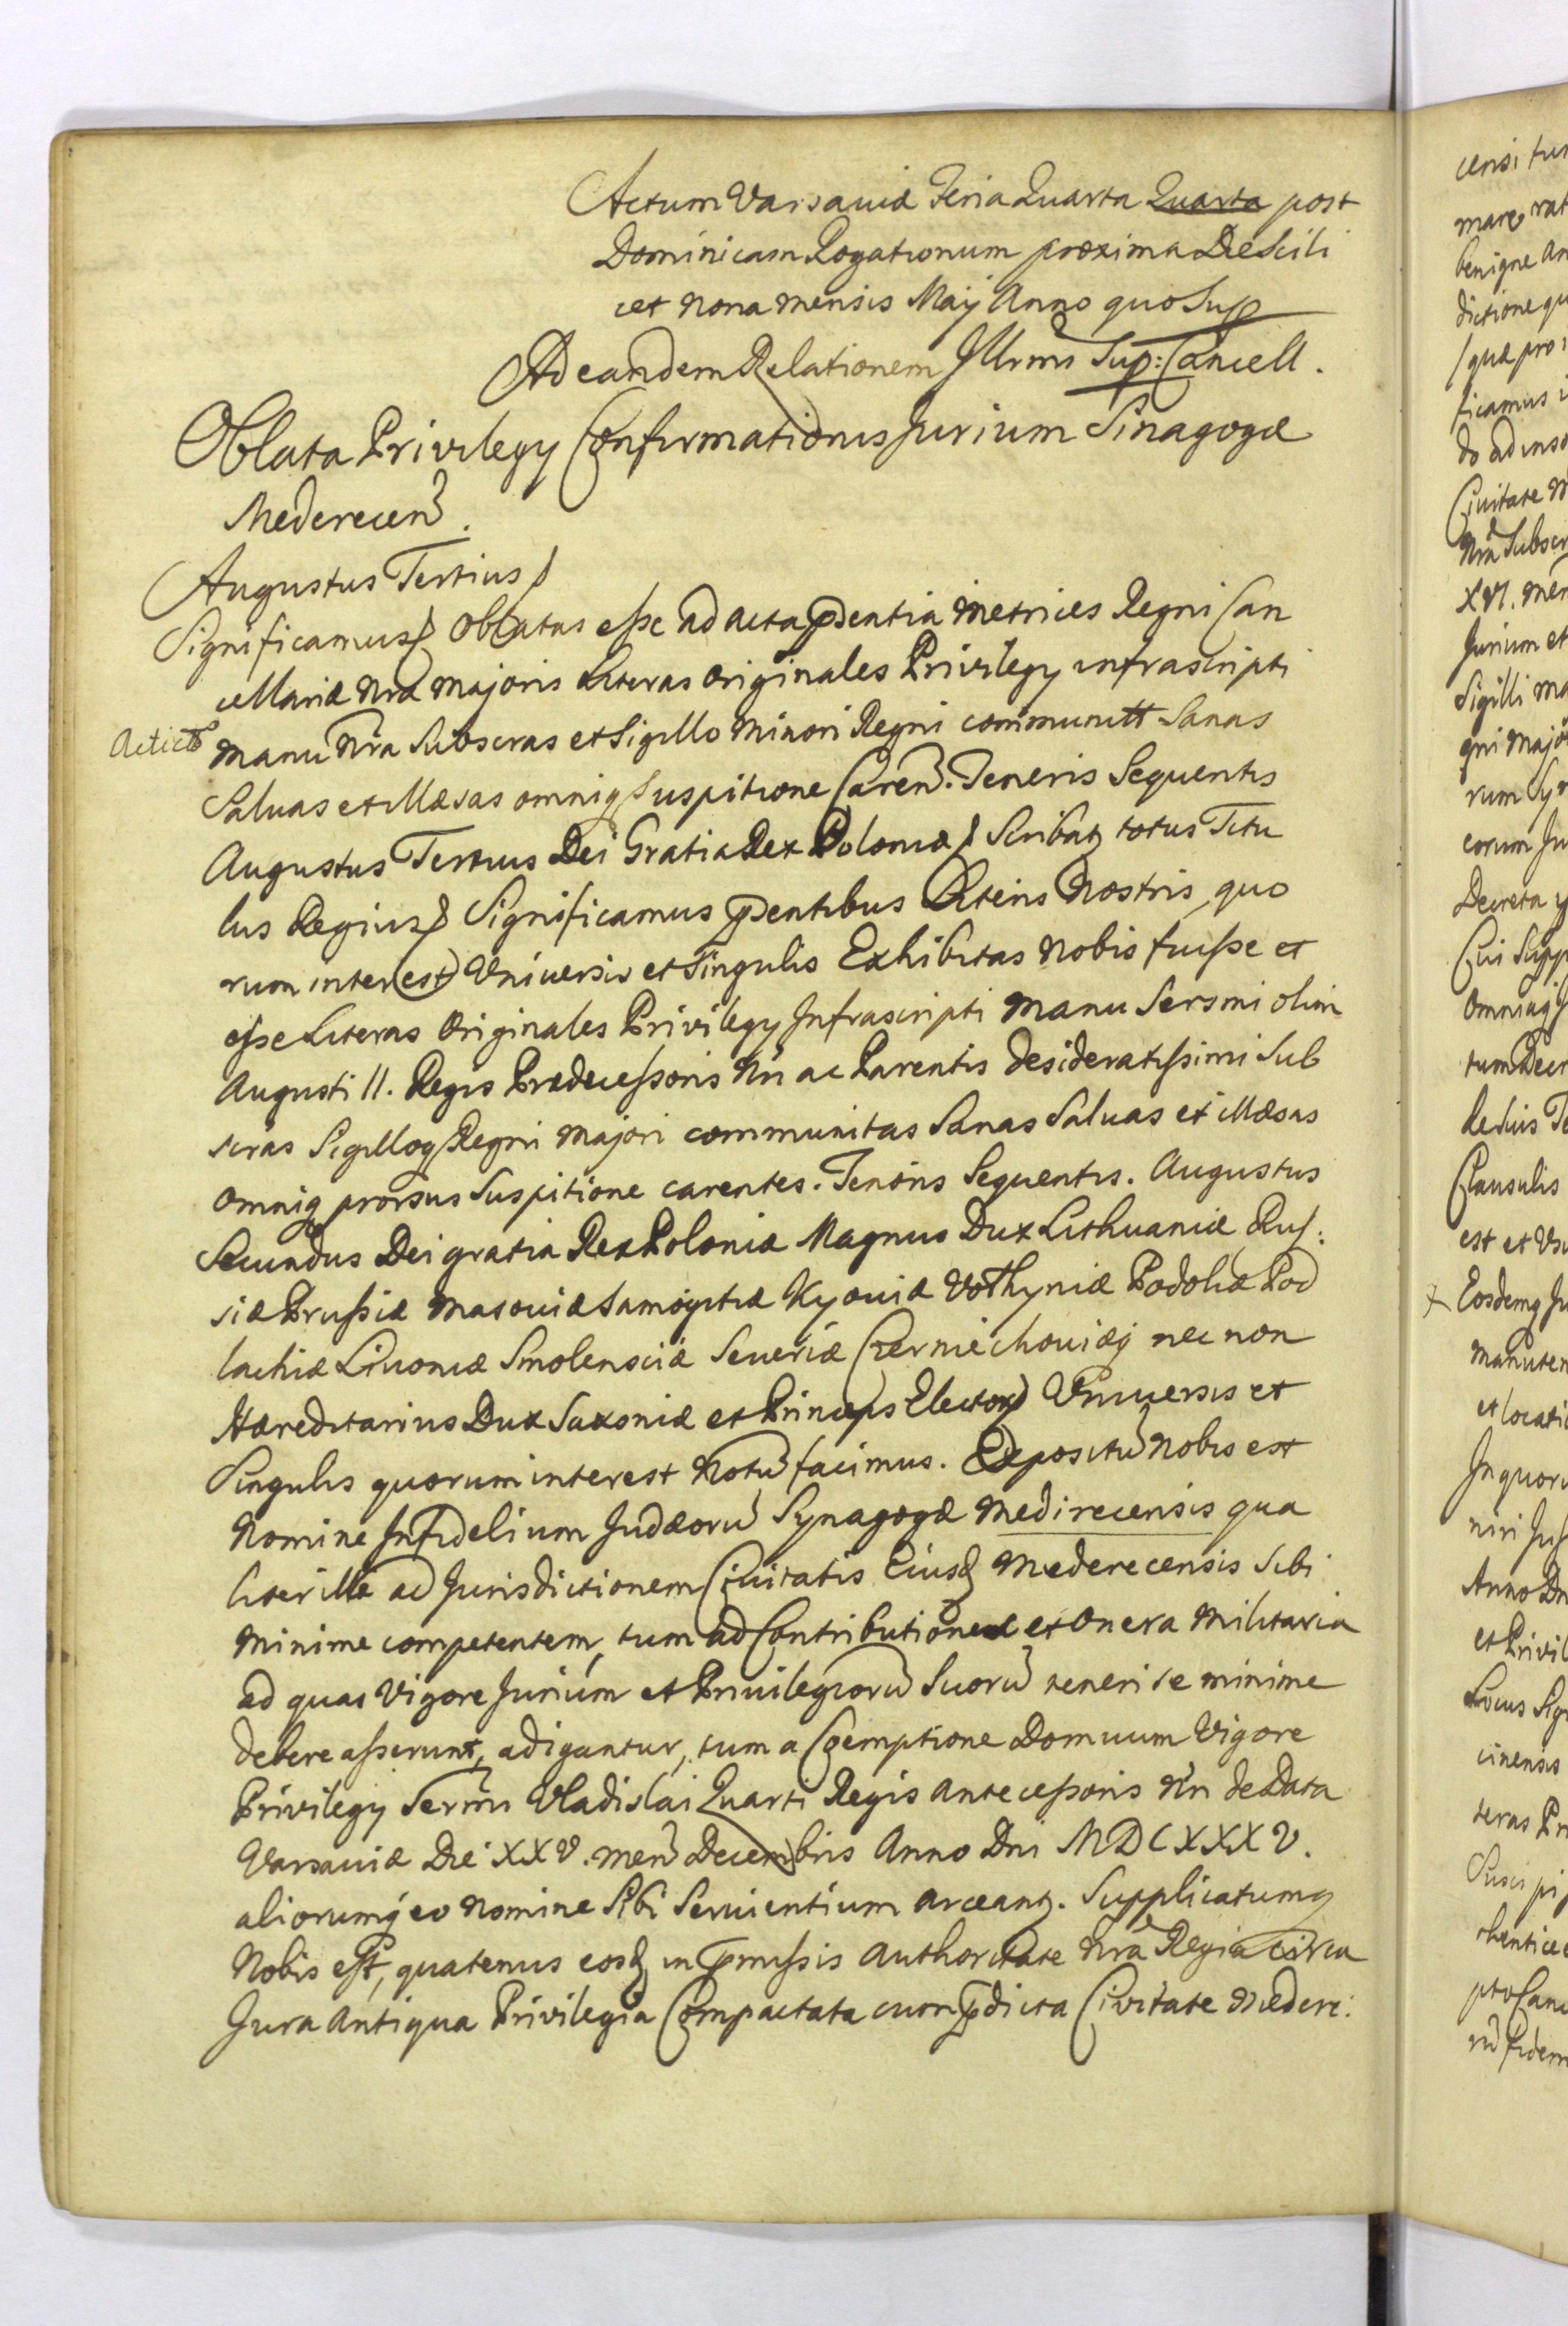 Actum Varsaviæ Feria Quarta Quarta post
Dominicam Rogationum proxima Die Scili
cet nona mensis Maij Anno quo Sup
Ad eandem Relationem Illrmi Sup: Cancell.
Oblata Privilegy Confirmationis Jurium Sinagogæ
Mederecen.
Augustus Tertius
Significamus Oblatas esse ad acta pdentia Metrices Regni Can
cellariæ Nræ Majoris Literas Originales Privilegy infrascripti
Acticto
manu Nra Subscras et Sigillo Minori Regni communitt Sanas
Saluas et illæsas omniq Suspitione Caren. Teneris Sequentis
Augustus Tertius Dei Gratia Rex Poloniæ Scribatz totus Titu
lus Regius Significamus pdentibus Literis Nostris, quo
rum interest Universis et Singulis Exhibitas Nobis fuisse et
esse Literas Originales Privilegy Infrascripti Manu Sersmi olim
Augusti II. Regis Prædecessoris Nri ac Parentis desideratissimi Sub
scras Sigilloq Regni Majori communitas Sanas Saluas et illæsas
Omniq prorsus Suspitione carentes. Tenoris Sequentis. Augustus
Secundus Dei gratia Rex Poloniæ Magnus Dux Lithuaniæ Rus:
siæ Prussiæ Masouiæ Samogitiæ Kyouiæ Volhyniæ Podoliæ Pod
lachiæ Livoniæ Smolensciæ Seueriæ Czerniechouiæq nec non
Hæreditarius Dux Saxoniæ et Princeps Elector Universis et
Singulis quorum interest Notu facimus. Expositu Nobis est
Nomine Infidelium Judæoru Synagogæ Medirecensis qua
liter illi ad Jurisdictionem Civitatis Eiusd Mederecensis Sibi
Minime competentem, tum ad Contributiones et Onera Militaria
ad quas Vigore Jurium et Privilegioru Suoru teneri se minime
debere asserunt, adigantur, tum a Coemptione Domuum Vigore
Privilegy Sermi Vladislai Quarti Regis Antecessoris Nri de Data
Varsaviæ Die XXV. men Decembris Anno Dni MDCXXXV.
aliorumq eo Nomine Sibi Seruientium arceantz. Supplicatumq
Nobis est, quatenus eosd in pmissis Authoritate Nra Regia circa
Jura Antiqua Privilegia Compactata cum pdicta Civitate Medere:
censi
benigne
Civitate
Nra
Sigilli
Decreta
Clausulis
et Privil